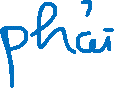 phải